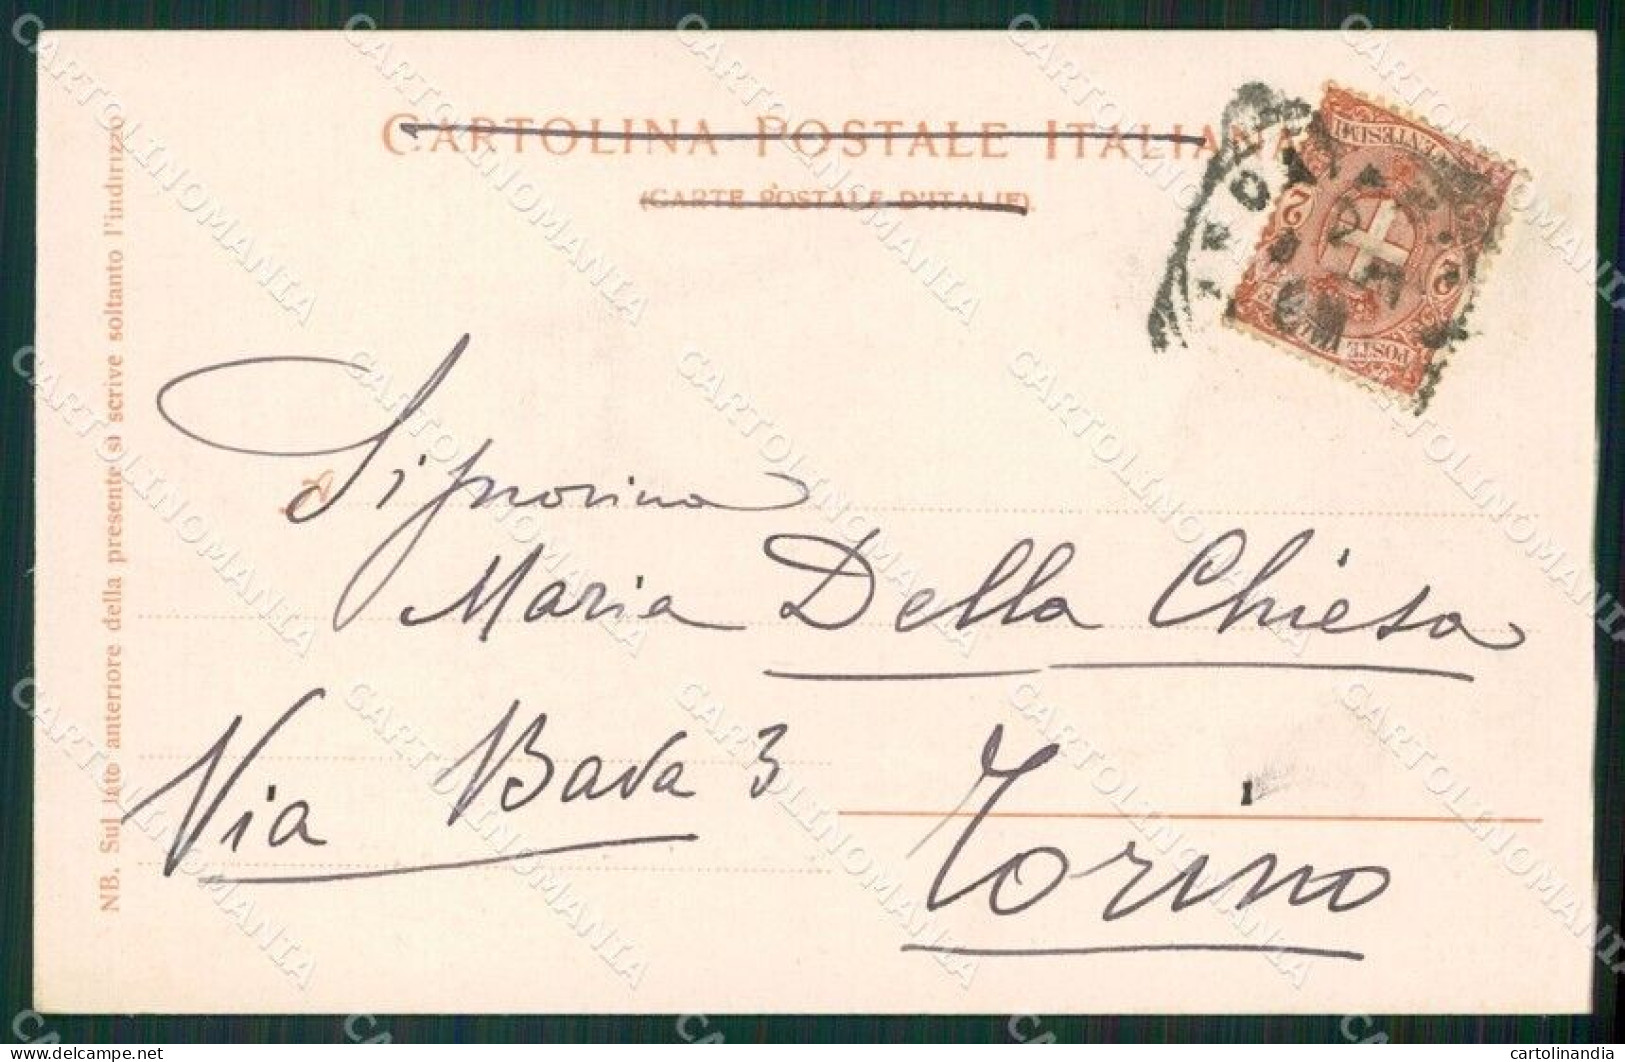 CARTOLINA POSTALE ITALIANA
(CARTE POSTALE D'ITALIE)
NB. Sul lato anteriore della presente si scrive soltanto l'indirizzo
CENTESIMI
2 2
POSTE
A
Signorina
Maria Della Chiesa
Via Bava 3
Torino
CARTOLINOMANIA
delcampe.net
cartolinandia